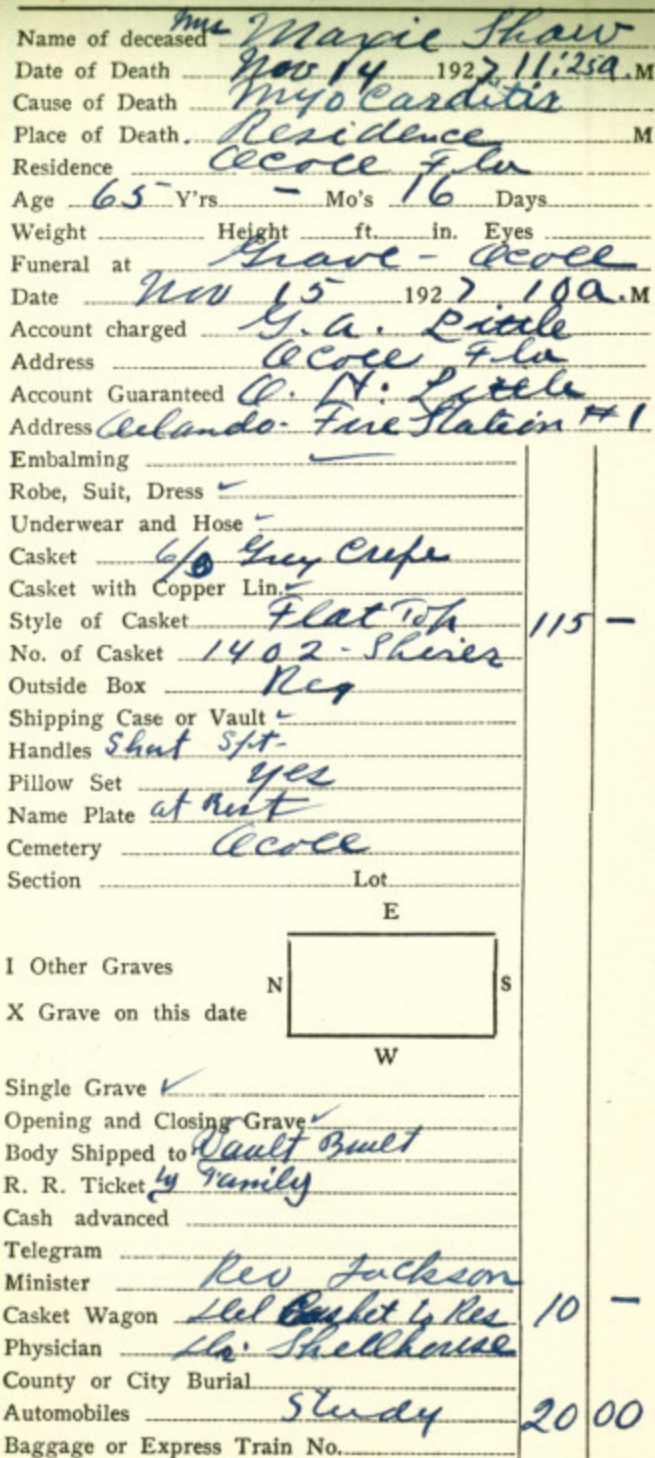 Name of deceased Mrs Maxie Shaw
Date of Death Nov 14 1927 11:25a.M
Cause of Death Myocarditis
Place of Death. Residence M
Residence Ocoee Fla
Age 65 Y'rs - Mo's 16 Days
Weight Height ft. in. Eyes
Funeral at Grave - Ocoee
Date Nov 15 1927 10a.M
Account charged G. A. Little
Address Ocoee Fla
Account Guaranteed O. H. Little
Address Orlando - Fire Station #1
Embalming
Robe, Suit, Dress ✓
Underwear and Hose ✓
Casket 6/3 Grey Crepe
Casket with Copper Lin. ✓
Style of Casket Flat Top 115 -
No. of Casket 1402 - Shires
Outside Box Reg
Shipping Case or Vault ✓
Handles Short
Pillow Set Yes
Name Plate at Rest
Cemetery Ocoee
Section Lot
E
I Other Graves
N S
X Grave on this date
W
Single Grave ✓
Opening and Closing Grave ✓
Body Shipped to Vault Built
R. R. Ticket by Family
Cash advanced
Telegram
Minister Rev Jackson
Casket Wagon Del Casket to Res 10 -
Physician Dr. Shellhouse
County or City Burial
Automobiles Study 20 00
Baggage or Express Train No.